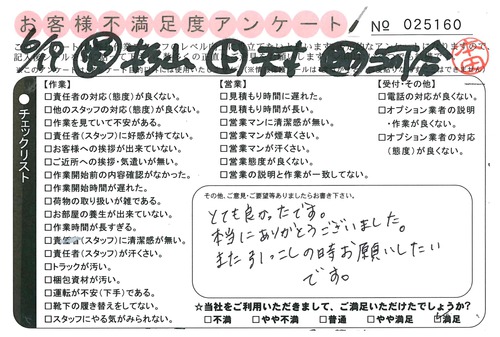 お客様不満足度アンケート
No 025160
6/9
チェックリスト
【作業】
□責任者の対応(態度)が良くない。
□他のスタッフの対応(態度)が良くない。
□作業を見ていて不安がある。
□責任者(スタッフ)に好感が持てない。
□お客様への挨拶が出来ていない。
□ご近所への挨拶・気遣いが無い。
□作業開始前の内容確認がなかった。
□作業開始時間が遅れた。
□荷物の取り扱いが雑である。
□お部屋の養生が出来ていない。
□作業時間が長すぎる。
(スタッフ)に清潔感が無い。
□責任者(スタッフ)が汗くさい。
□トラックが汚い。
□梱包資材が汚い。
□運転が不安(下手)である。
□靴下の履き替えをしてない。
□スタッフにやる気がみられない。
【営業】
□見積もり時間に遅れた。
□見積もり時間が長い。
□営業マンに清潔感が無い。
□営業マンが煙草くさい。
□営業マンが汗くさい。
□営業態度が良くない。
□営業の説明と作業が一致してない。
【受付・その他】
□電話の対応が良くない。
□オプション業者の説明
・作業が良くない。
□オプション業者の対応
(態度)が良くない。
その他、ご意見・ご要望等ありましたらお書き下さい。
とても良かったです。
本当にありがとうございました。
また引っこしの時お願いしたい
です。
☆当社をご利用いただきまして、ご満足いただけたでしょうか?
□不満 □やや不満 □普通 □やや満足 ☑満足